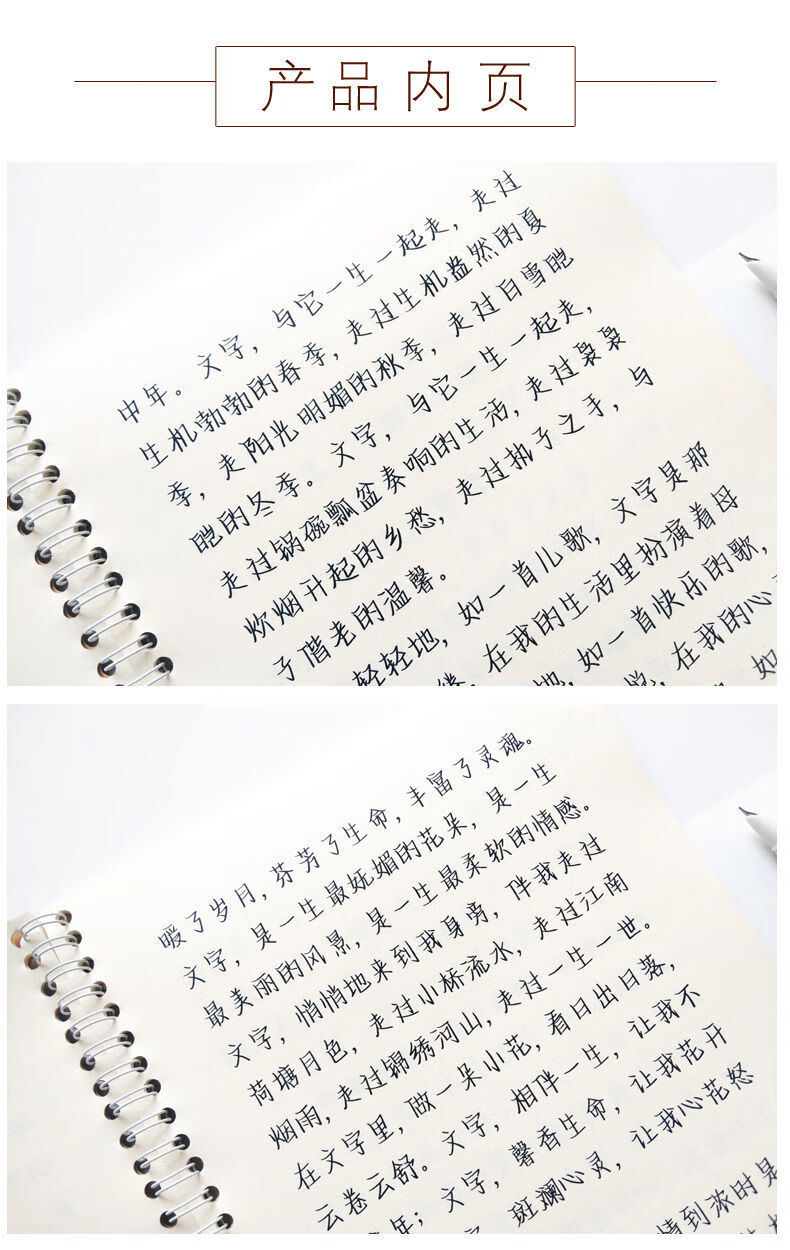 产品内页
中年。文字，与它一生一起走，走过
生机勃勃的春季，走过生机盎然的夏
季，走阳光明媚的秋季，走过白雪皑
皑的冬季。文字，与它一生一起走，
走过锅碗瓢盆奏响的生活，走过袅袅
炊烟升起的乡愁，走过执子之手，与
子偕老的温馨。
轻轻地，如一首儿歌，文字是那
在我的生活里扮演着母
地，如一首快乐的歌，
在我的心
如
暖了岁月，芬芳了生命，丰富了灵魂。
文字，是一生最妩媚的花朵，是一生
最美丽的风景，是一生最柔软的情感。
文字，悄悄地来到我身旁，伴我走过
荷塘月色，走过小桥流水，走过江南
烟雨，走过锦绣河山，走过一生一世。
在文字里，做一朵小花，看日出日落，
云卷云舒。文字，相伴一生，让我不
年；文字，馨香生命，让我花开
斑斓心灵，让我心花怒
情到浓时是